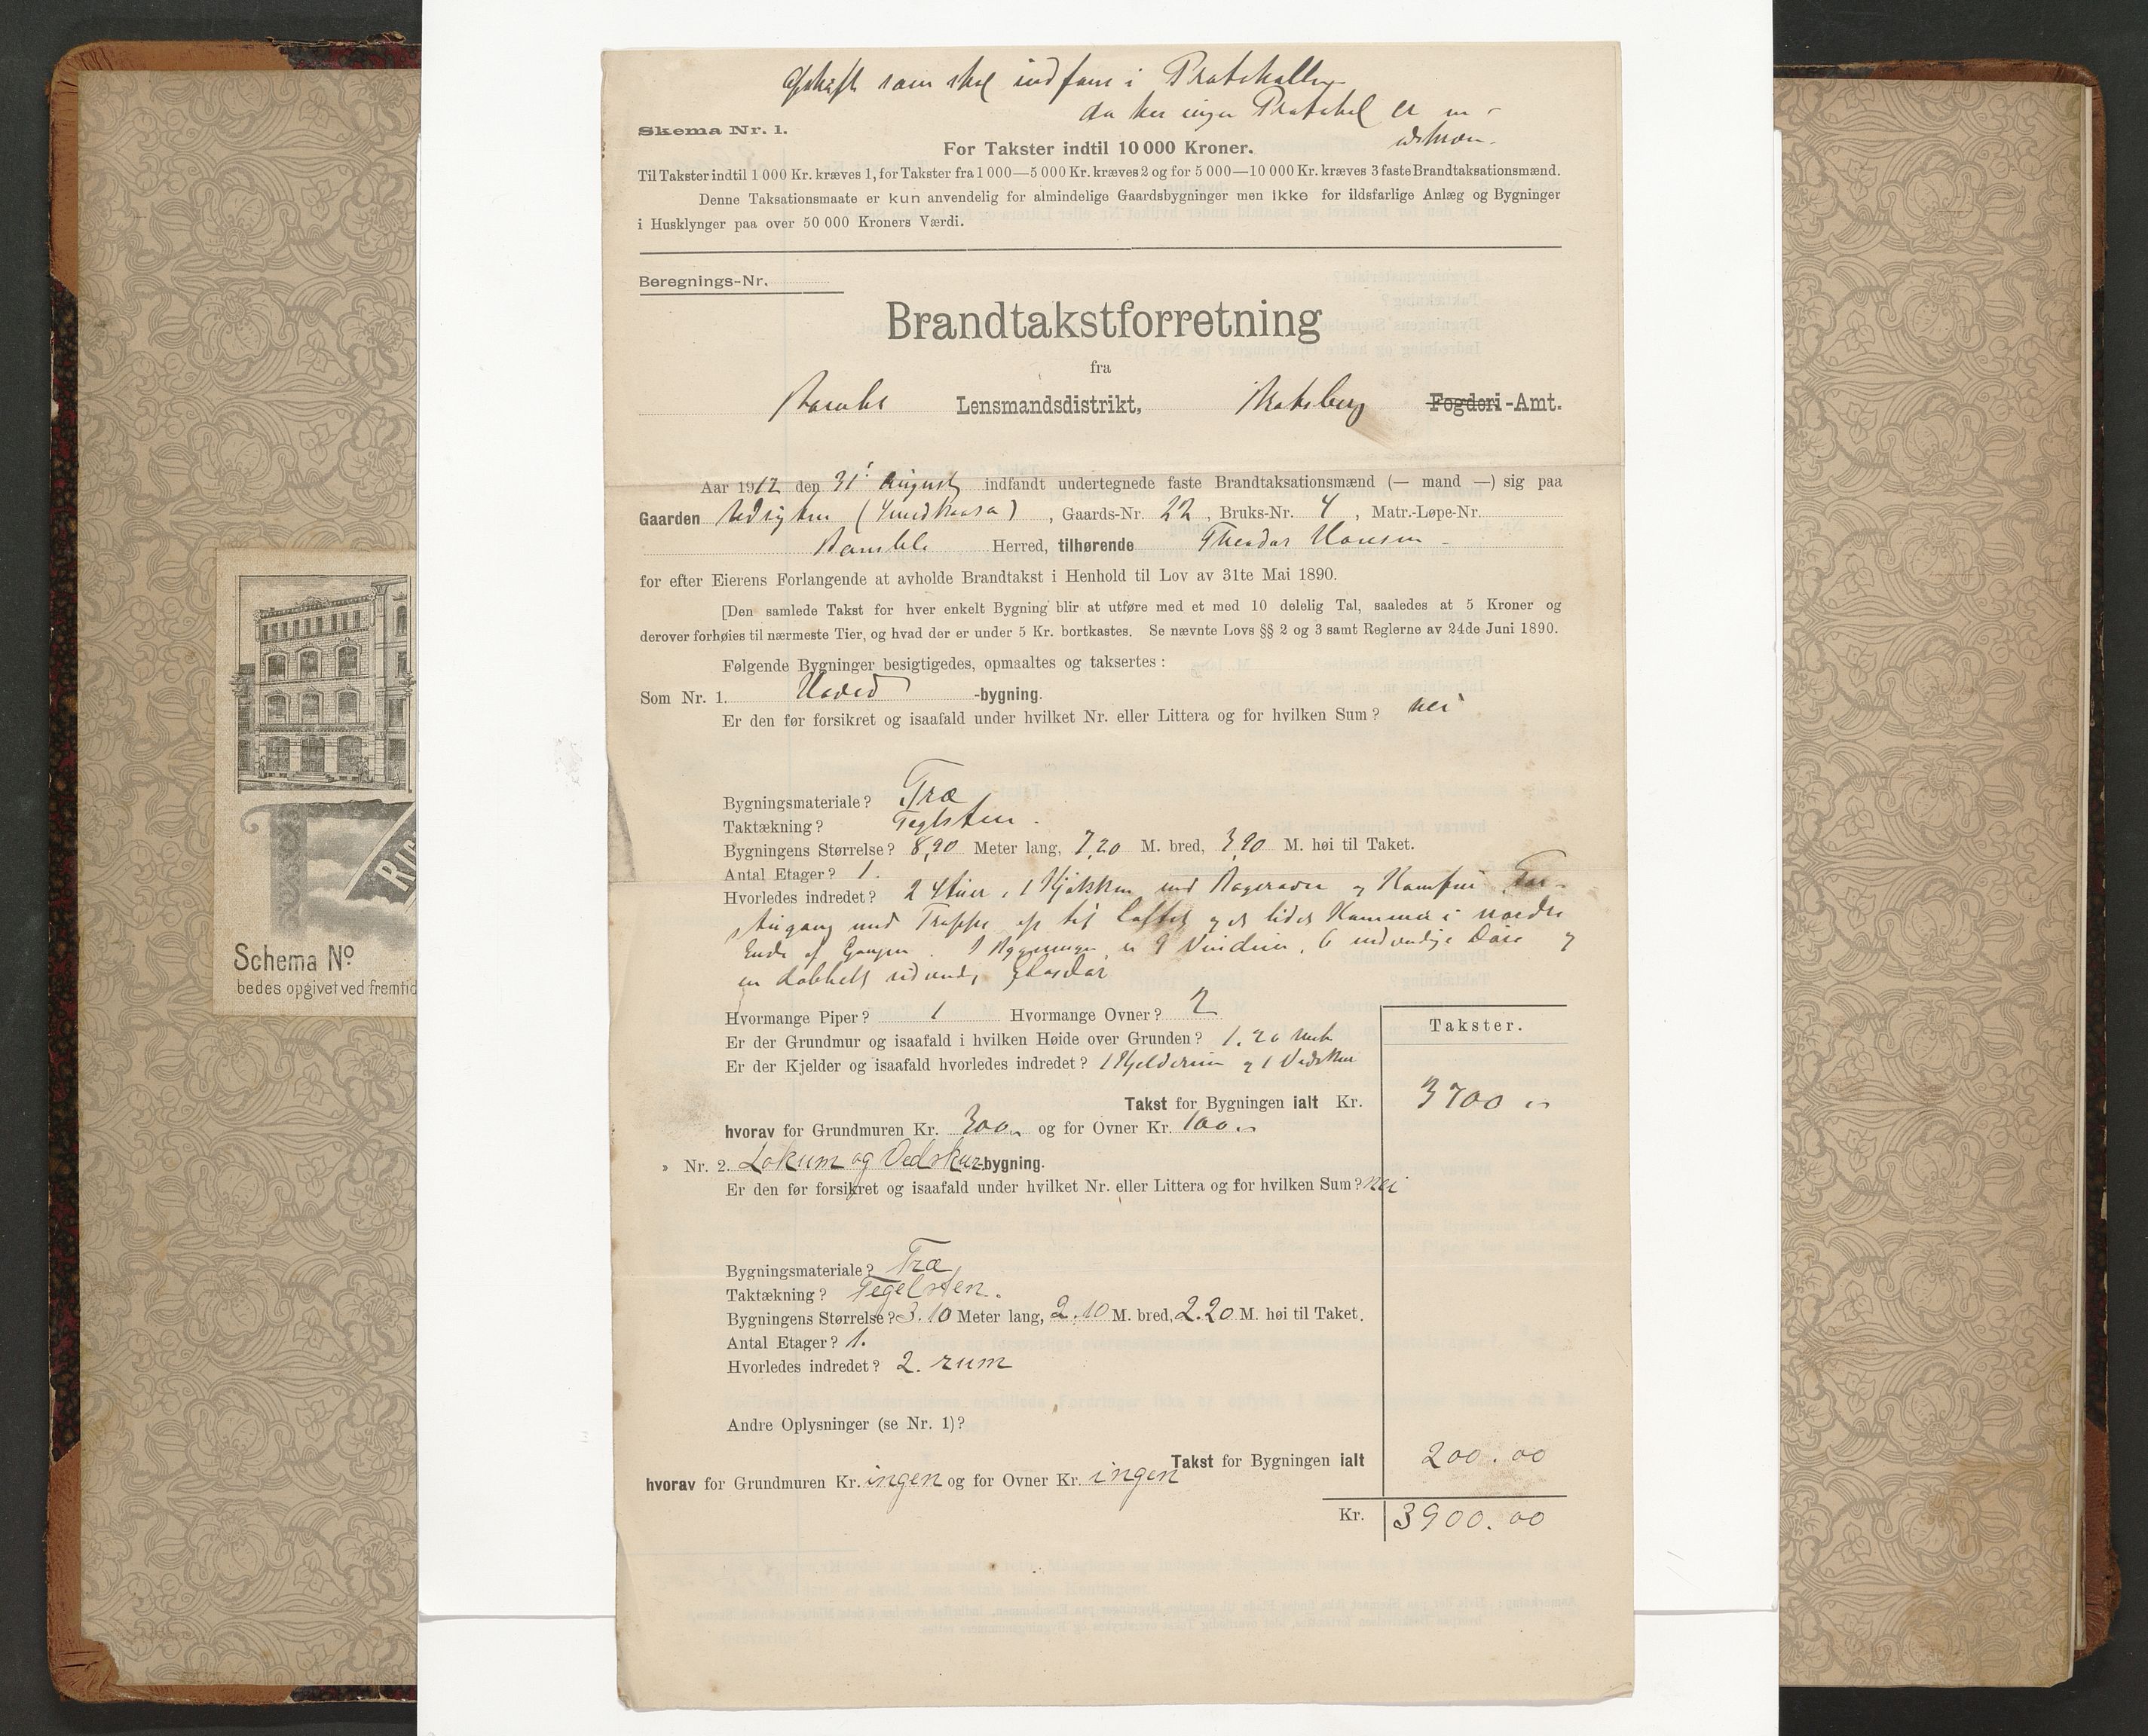 Afskrift som skal indføres i Protokollen
da her ingen Protokol er
Skema Nr. 1.
For Takster indtil 10 000 Kroner.
Til Takster indtil 1 000 Kr. kræves 1, for Takster fra 1 000—5 000 Kr. kræves 2 og for 5 000—10 000 Kr. kræves 3 faste Brandtaksationsmænd.
Denne Taksationsmaate er kun anvendelig for almindelige Gaardsbygninger men ikke for ildsfarlige Anlæg og Bygninger
i Husklynger paa over 50 000 Kroners Værdi.
Beregnings-Nr.
Brandtakstforretning
fra
Bamble Lensmandsdistrikt, Bratsberg Fogderi-Amt.
Aar 1912 den 31' August indfandt undertegnede faste Brandtaksationsmænd (— mand —) sig paa
Gaarden Udsigten, Gaards-Nr. 22, Bruks-Nr. 4, Matr.-Løpe-Nr.
Bamble Herred, tilhørende Theodor Hansen
for efter Eierens Forlangende at avholde Brandtakst i Henhold til Lov av 31te Mai 1890.
[Den samlede Takst for hver enkelt Bygning blir at utføre med et med 10 delelig Tal, saaledes at 5 Kroner og
derover forhøies til nærmeste Tier, og hvad der er under 5 Kr. bortkastes. Se nævnte Lovs §§ 2 og 3 samt Reglerne av 24de Juni 1890.
Følgende Bygninger besigtigedes, opmaaltes og taksertes:
Som Nr. 1. Hoved -bygning.
Er den før forsikret og isaafald under hvilket Nr. eller Littera og for hvilken Sum? nei
Bygningsmateriale? Træ
Taktækning? Teglsten.
Bygningens Størrelse? 8,90 Meter lang, 7,20 M. bred, 3,90 M. høi til Taket.
Antal Etager? 1.
Hvorledes indredet? 2 Stuer, 1 Kjøkken med Bagerovn og Komfur For-
stugang med Trappe op til Loftet og et lidet Kammer i nordre
Ende af Gangen. I Bygningen er 9 Vinduer, 6 indvendige Døre og
en dobbelt udvendig Glasdør
Hvormange Piper? 1 Hvormange Ovner? 2
Er der Grundmur og isaafald i hvilken Høide over Grunden? 1.20 mtr
Er der Kjelder og isaafald hvorledes indredet? 1 Kjelderrum og 1 Vedskur
Takster.
Takst for Bygningen ialt Kr. 3700
hvorav for Grundmuren Kr. 300 og for Ovner Kr. 100
» Nr. 2. Lokum og Vedskur-bygning.
Er den før forsikret og isaafald under hvilket Nr. eller Littera og for hvilken Sum? nei
Bygningsmateriale? Træ
Taktækning? Tegelsten.
Bygningens Størrelse? 3.10 Meter lang, 2.10 M. bred, 2.20 M. høi til Taket.
Antal Etager? 1.
Hvorledes indredet? 2. rum
Andre Oplysninger (se Nr. 1)?
Takst for Bygningen ialt 200.00
hvorav for Grundmuren Kr. ingen og for Ovner Kr. ingen
Kr. 3900.00
Schema No
bedes opgivet ved fremtid